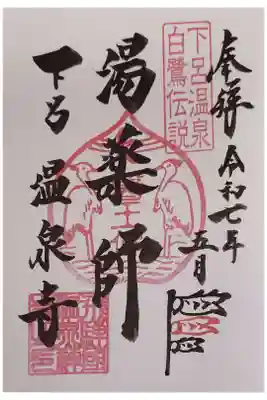 奉拝 令和七年
五月
下呂温泉
白鷺伝説
湯薬師
下呂 温泉寺